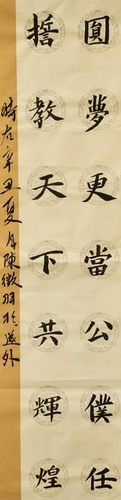 圓夢更當公僕任
誓教天下共輝煌
時在辛丑夏月陳徽羽於巡外